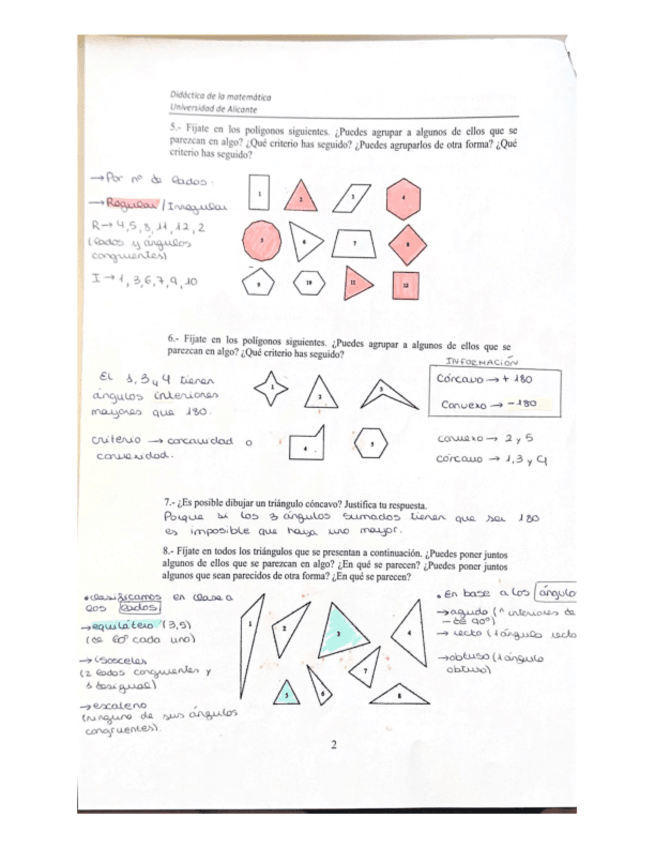 Didáctica de la matemática
Universidad de Alicante
5.- Fíjate en los polígonos siguientes. ¿Puedes agrupar a algunos de ellos que se
parezcan en algo? ¿Qué criterio has seguido? ¿Puedes agruparlos de otra forma? ¿Qué
criterio has seguido?
→ Por nº de lados:
→ Regular / Irregular
R → 4,5,8,11,12,2
(lados y ángulos
congruentes)
I → 1,3,6,7,9,10
1 2 3 4
5 6 7 8
9 10 11 12
6.- Fíjate en los polígonos siguientes. ¿Puedes agrupar a algunos de ellos que se
parezcan en algo? ¿Qué criterio has seguido?
El 1,3 y 4 tienen
ángulos interiores
mayores que 180.
criterio → concavidad o
convexidad.
1 2 3
4 5
INFORMACIÓN
Cóncavo → + 180
Convexo → - 180
convexo → 2 y 5
cóncavo → 1,3 y 4
7.- ¿Es posible dibujar un triángulo cóncavo? Justifica tu respuesta.
Porque si los 3 ángulos sumados tienen que ser 180
es imposible que haya uno mayor.
8.- Fíjate en todos los triángulos que se presentan a continuación. ¿Puedes poner juntos
algunos de ellos que se parezcan en algo? ¿En qué se parecen? ¿Puedes poner juntos
algunos que sean parecidos de otra forma? ¿En qué se parecen?
• Clasificamos en base a
los lados
→ equilátero (3,5)
(de 60º cada uno)
→ Isósceles
(2 lados congruentes y
desigual)
→ escaleno
(ninguno de sus ángulos
congruentes).
1 2 3 4
5 6 7 8
• En base a los ángulo
→ agudo (interiores de
- de 90º)
→ recto (1 ángulo recto
→ obtuso (1 ángulo
obtuso)
2